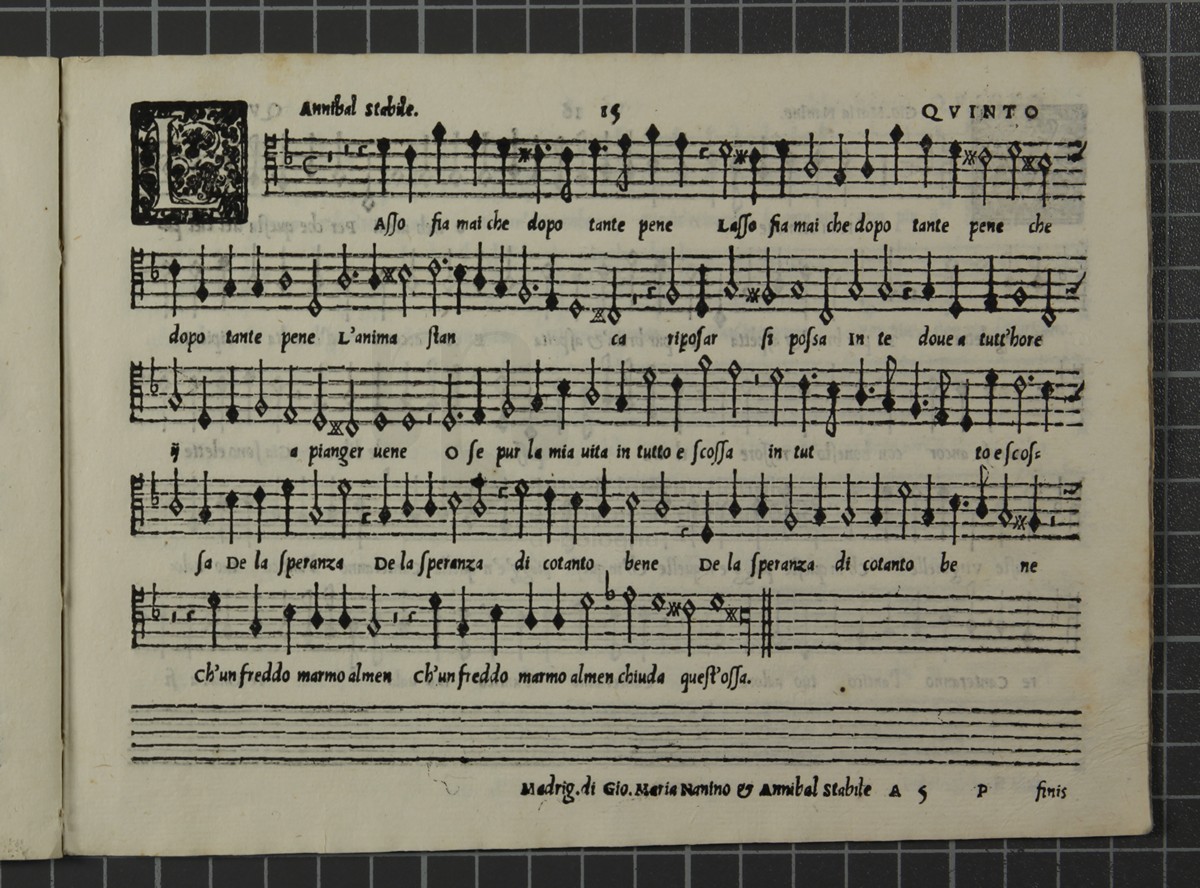 Annibal Stabile. 15 QVINTO
LAſſo fia mai che dopo tante pene Laſſo fia mai che dopo tante pene che
dopo tante pene L'anima ſtan ca ripoſar ſi poſsa In te doue a tutt'hore
ij a pianger uene O ſe pur la mia uita in tutto è ſcoſſa in tut to e ſcoſ=
ſa De la ſperanza De la ſperanza di cotanto bene De la ſperanza di cotanto be ne
Ch'un freddo marmo almen Ch'un freddo marmo almen chiuda queſt'oſſa.
Madrig. di Gio. Maria Nanino & Annibal Stabile A 5 P finis